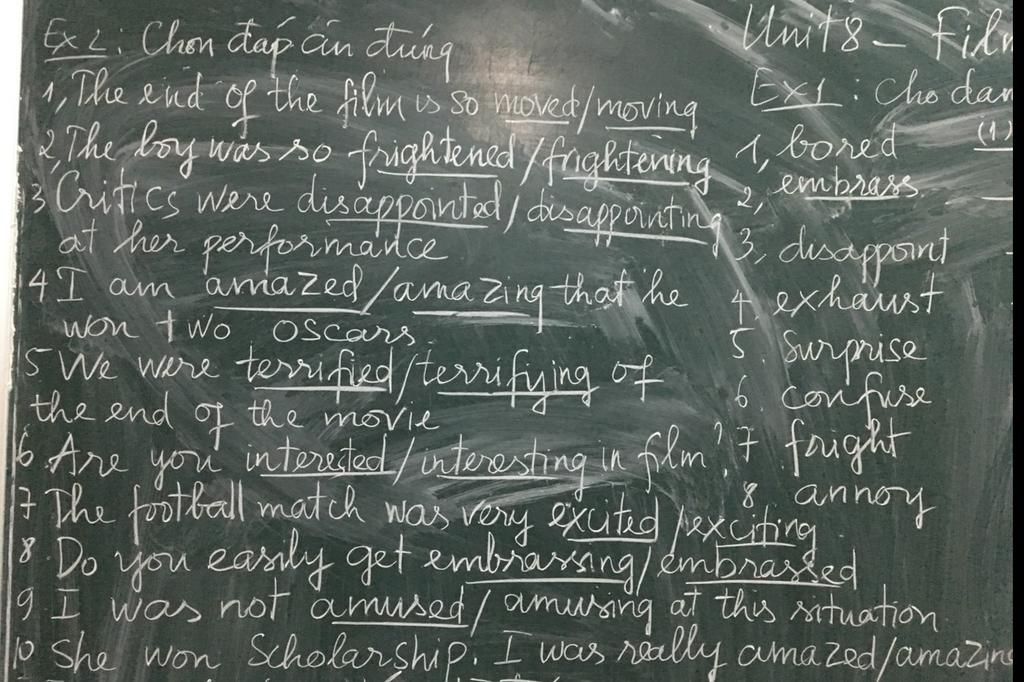 Ex2: Chọn đáp án đúng
1, The end of the film is so moved/moving
2, The boy was so frightened/frightening
3 Critics were disappointed/disappointing
at her performance
4 I am amazed/amazing that he
won two oscars
5 We were terrified/terrifying of
the end of the movie
6 Are you interested/interesting in film?
7 The football match was very excited/exciting
8 Do you easily get embrassing/embrassed
9 I was not amused/amusing at this situation
10 She won Scholarship. I was really amazed/amazin
Unit 8 – Film
Ex1: Cho dạn
1, bored (1)
2, embrass
3, disappoint
4 exhaust
5. Surprise
6. confuse
7 fright
8 annoy